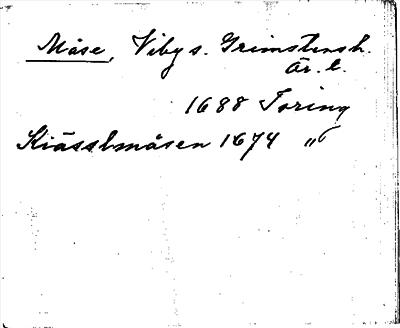 Måse, Viby s. Grimstens h.
Ör. l.
1688 Toring
Kiässlmåsen 1674 "